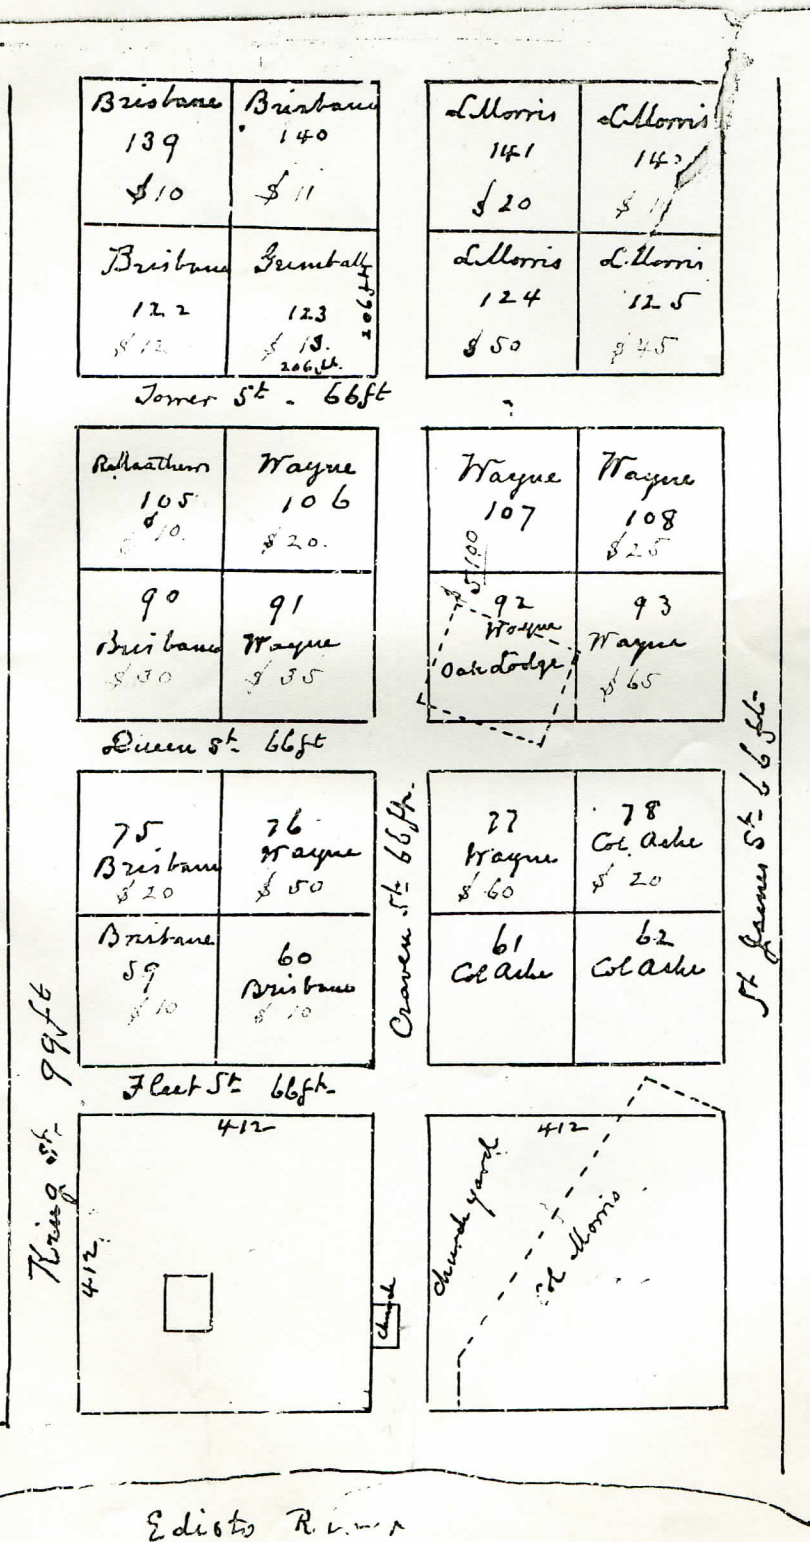 Brisbane
139
$10
Brisbane
140
$11
L Morris
141
$20
L Morris
$
Brisbane
122
$12
Grimball
123
$13.
206 ft.
206 ft
L Morris
124
$50
L. Morris
125
$45
Tower St - 66ft
R. Mathews
105
$10.
Wayne
106
$20.
Wayne
107
Wayne
108
$25
$5100
90
Brisbane
$30
91
Wayne
$35
92
Wayne
Oak Lodge
93
Wayne
$65
Queen St - 66ft
75
Brisbane
$20
76
Wayne
$50
77
Wayne
$60
78
Col. Ashe
$20
Brisbane
59
$10
60
Brisbane
$10
61
Col Ashe
62
Col Ashe
Craven St - 66ft.
St James St - 66ft-
King St - 99ft
Fleet St - 66ft-
412
412
412
Church
Church yard
Col Morris
Edisto River